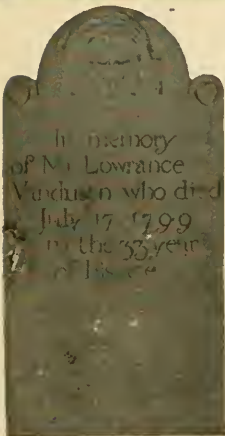 In memory
of Mr Lowrance
who died
July 17 1799
in the 33 year
of his age